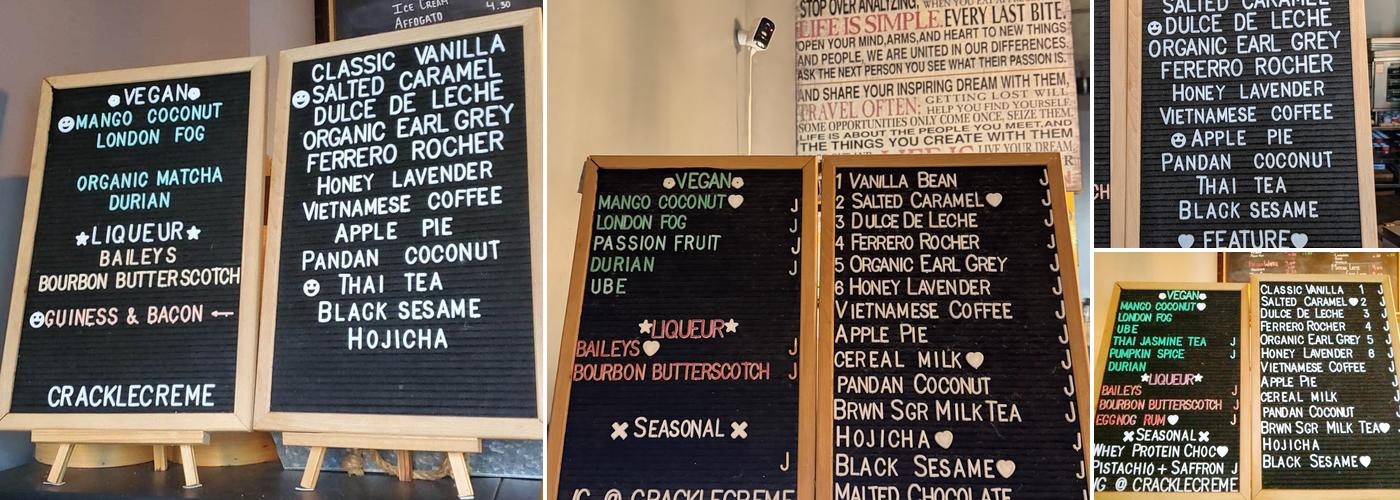 ICE CREAM
AFFOGATO 4.30
VEGAN
MANGO COCONUT
LONDON FOG
ORGANIC MATCHA
DURIAN
LIQUEUR
BAILEYS
BOURBON BUTTERSCOTCH
GUINESS & BACON
CRACKLECREME
CLASSIC VANILLA
SALTED CARAMEL
DULCE DE LECHE
ORGANIC EARL GREY
FERRERO ROCHER
HONEY LAVENDER
VIETNAMESE COFFEE
APPLE PIE
PANDAN COCONUT
THAI TEA
BLACK SESAME
HOJICHA
STOP OVER ANALYZING,
LIFE IS SIMPLE. EVERY LAST BITE.
OPEN YOUR MIND, ARMS, AND HEART TO NEW THINGS
AND PEOPLE, WE ARE UNITED IN OUR DIFFERENCES.
ASK THE NEXT PERSON YOU SEE WHAT THEIR PASSION IS.
AND SHARE YOUR INSPIRING DREAM WITH THEM,
TRAVEL OFTEN; GETTING LOST WILL
HELP YOU FIND YOURSELF.
SOME OPPORTUNITIES ONLY COME ONCE, SEIZE THEM.
LIFE IS ABOUT THE PEOPLE YOU MEET, AND
THE THINGS YOU CREATE WITH THEM
LIFE IS LIVE YOUR DREAM
VEGAN
MANGO COCONUT J
LONDON FOG J
PASSION FRUIT J
DURIAN J
UBE
LIQUEUR
BAILEYS J
BOURBON BUTTERSCOTCH J
SEASONAL
J
IG @ CRACKLECREME
1 VANILLA BEAN J
2 SALTED CARAMEL J
3 DULCE DE LECHE J
4 FERRERO ROCHER J
5 ORGANIC EARL GREY J
6 HONEY LAVENDER J
VIETNAMESE COFFEE J
APPLE PIE J
CEREAL MILK J
PANDAN COCONUT J
BRWN SGR MILK TEA J
HOJICHA J
BLACK SESAME J
MALTED CHOCOLATE
SALTED CARAMEL
DULCE DE LECHE
ORGANIC EARL GREY
FERERRO ROCHER
HONEY LAVENDER
VIETNAMESE COFFEE
APPLE PIE
PANDAN COCONUT
THAI TEA
BLACK SESAME
FEATURE
CH
VEGAN
MANGO COCONUT
LONDON FOG
UBE
THAI JASMINE TEA J
PUMPKIN SPICE J
DURIAN
LIQUEUR
BAILEYS J
BOURBON BUTTERSCOTCH J
EGGNOG RUM J
SEASONAL
WHEY PROTEIN CHOC
PISTACHIO + SAFFRON J
IG @ CRACKLECREME
CLASSIC VANILLA 1 J
SALTED CARAMEL 2 J
DULCE DE LECHE 3 J
FERRERO ROCHER 4 J
ORGANIC EARL GREY 5 J
HONEY LAVENDER 6 J
VIETNAMESE COFFEE J
APPLE PIE J
CEREAL MILK J
PANDAN COCONUT J
BRWN SGR MILK TEA J
HOJICHA
BLACK SESAME